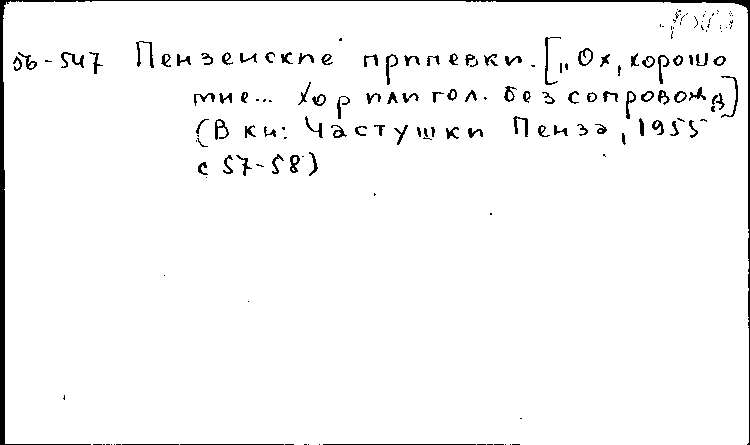 56-547 Пензенские припевки. [„Ох, хорошо
мне... Хор или гол. без сопровожд]
(В кн: Частушки Пенза, 1955
с 57-58)